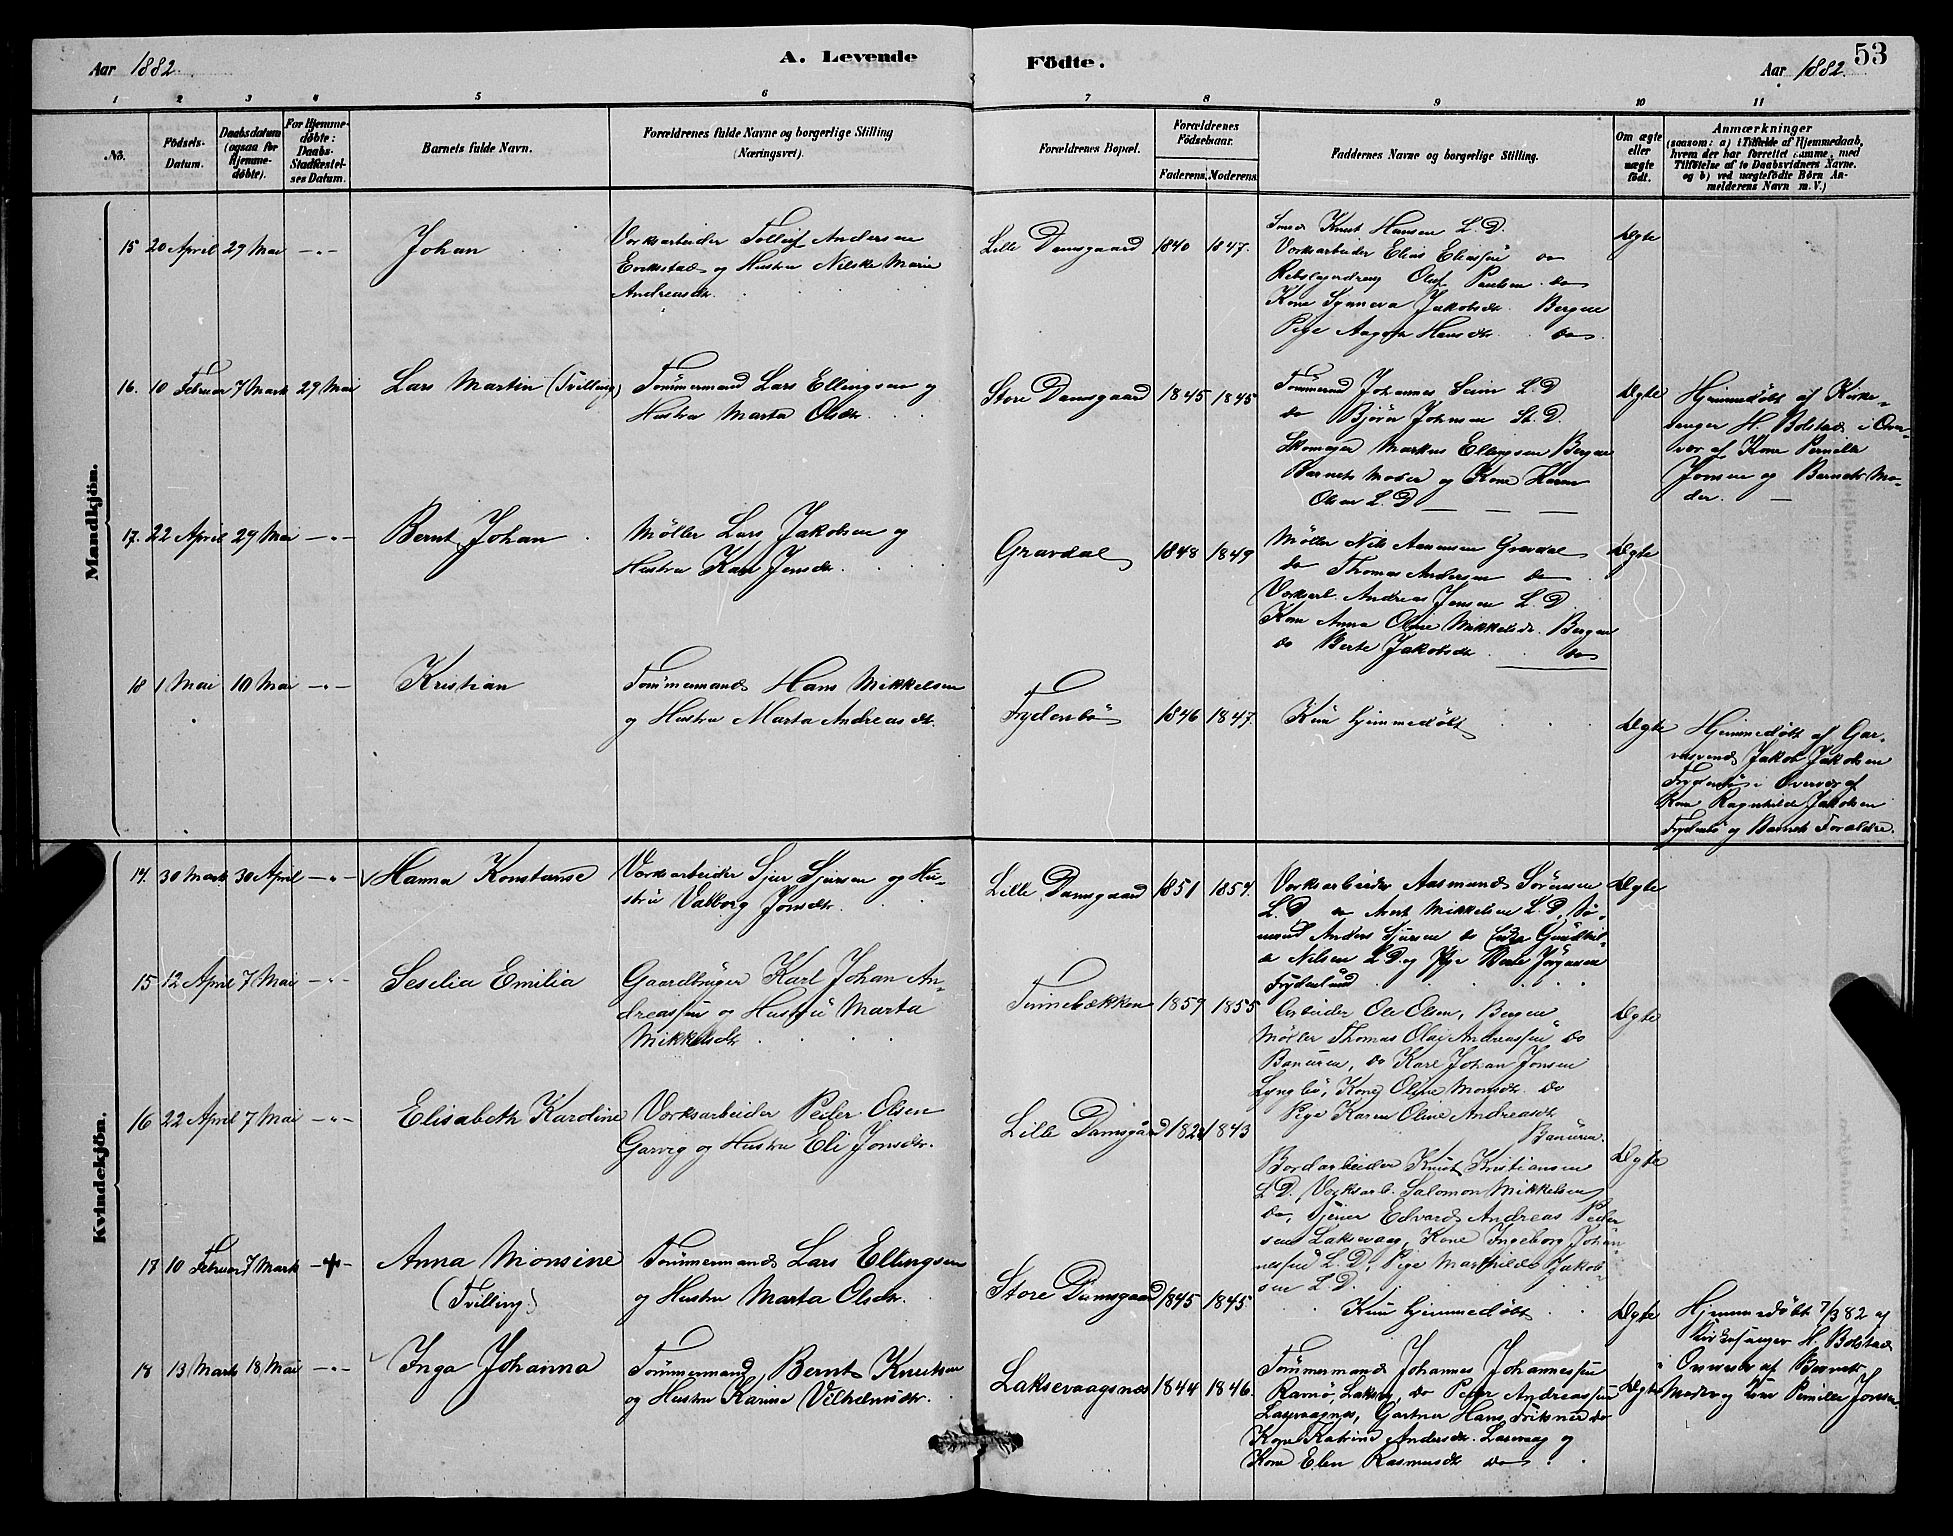 Aar 1882.
A. Levende Födte.
Aar 1882.
53
1 2 3 4 5 6 7 8 9 10 11
No.
Födsels-
Datum.
Daabsdatum
(ogsaa for
Hjemme-
döbte).
For Hjemme-
döbte:
Daabs-
Stadfæstel-
ses Datum.
Barnets fulde Navn.
Forældrenes fulde Navne og borgerlige Stilling
(Næringsvei).
Forældrenes Bopæl.
Forældrenes
Födselsaar.
Faderens. Moderens.
Faddernes Navne og borgerlige Stilling.
Om ægte
eller
uægte
födt.
Anmærkninger
(saasom: a) i Tilfælde af Hjemmedaab,
hvem der har forrettet samme, med
Tilföielse af to Daabsvidners Navne.
og b) ved uægtefödte Börn An-
melderens Navn m. V.)
Mandkjön.
15 20 April 29 Mai -"- Johan
Vorksarbeider Tollef Andersen
og Hustru Nilske Marie
Andreasdtr.
Lille Damsgaard 1840 1847.
Smed Knut Hansen L.D.
Vorksarbeider Elias Eliassen do
Olaf Paulsen do
Kone Synneva Jakobsdtr. Bergen
Pige Hansdtr. do
Ægte
16. 10 Februar 7 Marts 29 Mai Lars Martin (Tvilling)
Tömmermand Lars Ellingsen og
Hustru Marta Olsdtr.
Store Damsgaard 1845 1845
Tömmermd Johannes Seim L.D
do Björn Johnsen St.D.
Skomager Markus Ellingsen Bergen
Barnets Moder og Kone
Olsen L.D
Ægte
Hjemmedöbt af Kirke-
sanger H. Bolstad i Over-
vær af Kone Pernille
Jonsen og Barnets Mo-
der.
17. 22 April 29 Mai -"- Bernt Johan
Møller Lars Jakobsen og
Hustru Kari Jonsdtr.
Gravdal 1848 1849
Møller Nils Gravdal
do Thomas Andersen do
Vorksarb. Andreas Jensen L.D.
Kone Anna Oline Mikkelsdtr. Bergen
do Berte Jakobsdtr. do
Ægte
18 1 Mai 10 Mai -"- Kristian
Tømmermand Hans Mikkelsen
og Hustru Marta Andreasdtr.
Frydenbö 1846 1847.
Kun hjemmedöbt
Ægte
Hjemmedöbt af Gar-
versvend Jakob Jakobsen
Frydenbö i Overvær af
Kone Ragnhilde Jakobsen
Frydenbö og Barnets Forældre.
Kvindekjön.
14. 30 Marts 30 April -"- Hanna Konstanse
Vorksarbeider Sjur Sjursen og Hu-
stru Valborg Jonsdtr.
Lille Damsgaard 1851 1854.
Vorksarbeider Aasmund Sörensen
L.D do Mikkelsen L.D, Tö-
mermd Anders Sjursen do
Nilsen L.D. og Pige Jörgensen
Frydenlund
Ægte
15 12 April 7 Mai -"- Seselia Emilia
Gaardbruger Karl Johan An-
dreassen og Hustru Marta
Mikkelsdtr
Tennebækken 1859 1855
Arbeider Ole Olsen, Bergen
Møller Thomas Olai Andreassen do
do Karl Johan Jonsen
Lyngbö, Kone Oline Monsdtr. do
Pige Karen Oline Andreasdtr
Ægte
16 22 April 7 Mai -"- Elisabeth Karoline
Vorksarbeider Peder Olsen
Garvig og Hustru Eli Jonsdtr.
Lille Damsgård 1843
Bordarbeider Knut Kristiansen
L.D. Vorksarb. Salomon Mikkelsen
do, Tjener Edvard Andreas Peder-
sen Laksevaag, Kone Ingeborg Johan-
nessen L.D, Pige Jakob-
sen L.D.
Ægte
17 10 Februar 7 Marts Anna Monsine
(Tvilling)
Tömmermand Lars Ellingsen
og Hustru Marta Olsdtr.
Store Damsgaard 1845 1845
Kun hjemmedöbt
Ægte
Hjemmedöbt 7/3 82 af
Kirkesanger H. Bolstad
i Overvær af Barnets
Moder og Kone Pernille Jonsen
18 13 Marts 18 Mai -"- Inga Johanna
Tömmermand Bernt Knutsen
og Hustru Karine Vilhelmsdtr.
Laksevaagsnæs 1844 1846.
Tömmermand Johannes Johannessen
do Peder Andreassen
Gartner Hans do
Kone Katrine Andersdtr. og
Kone Elen Rasmusdtr do
Ægte